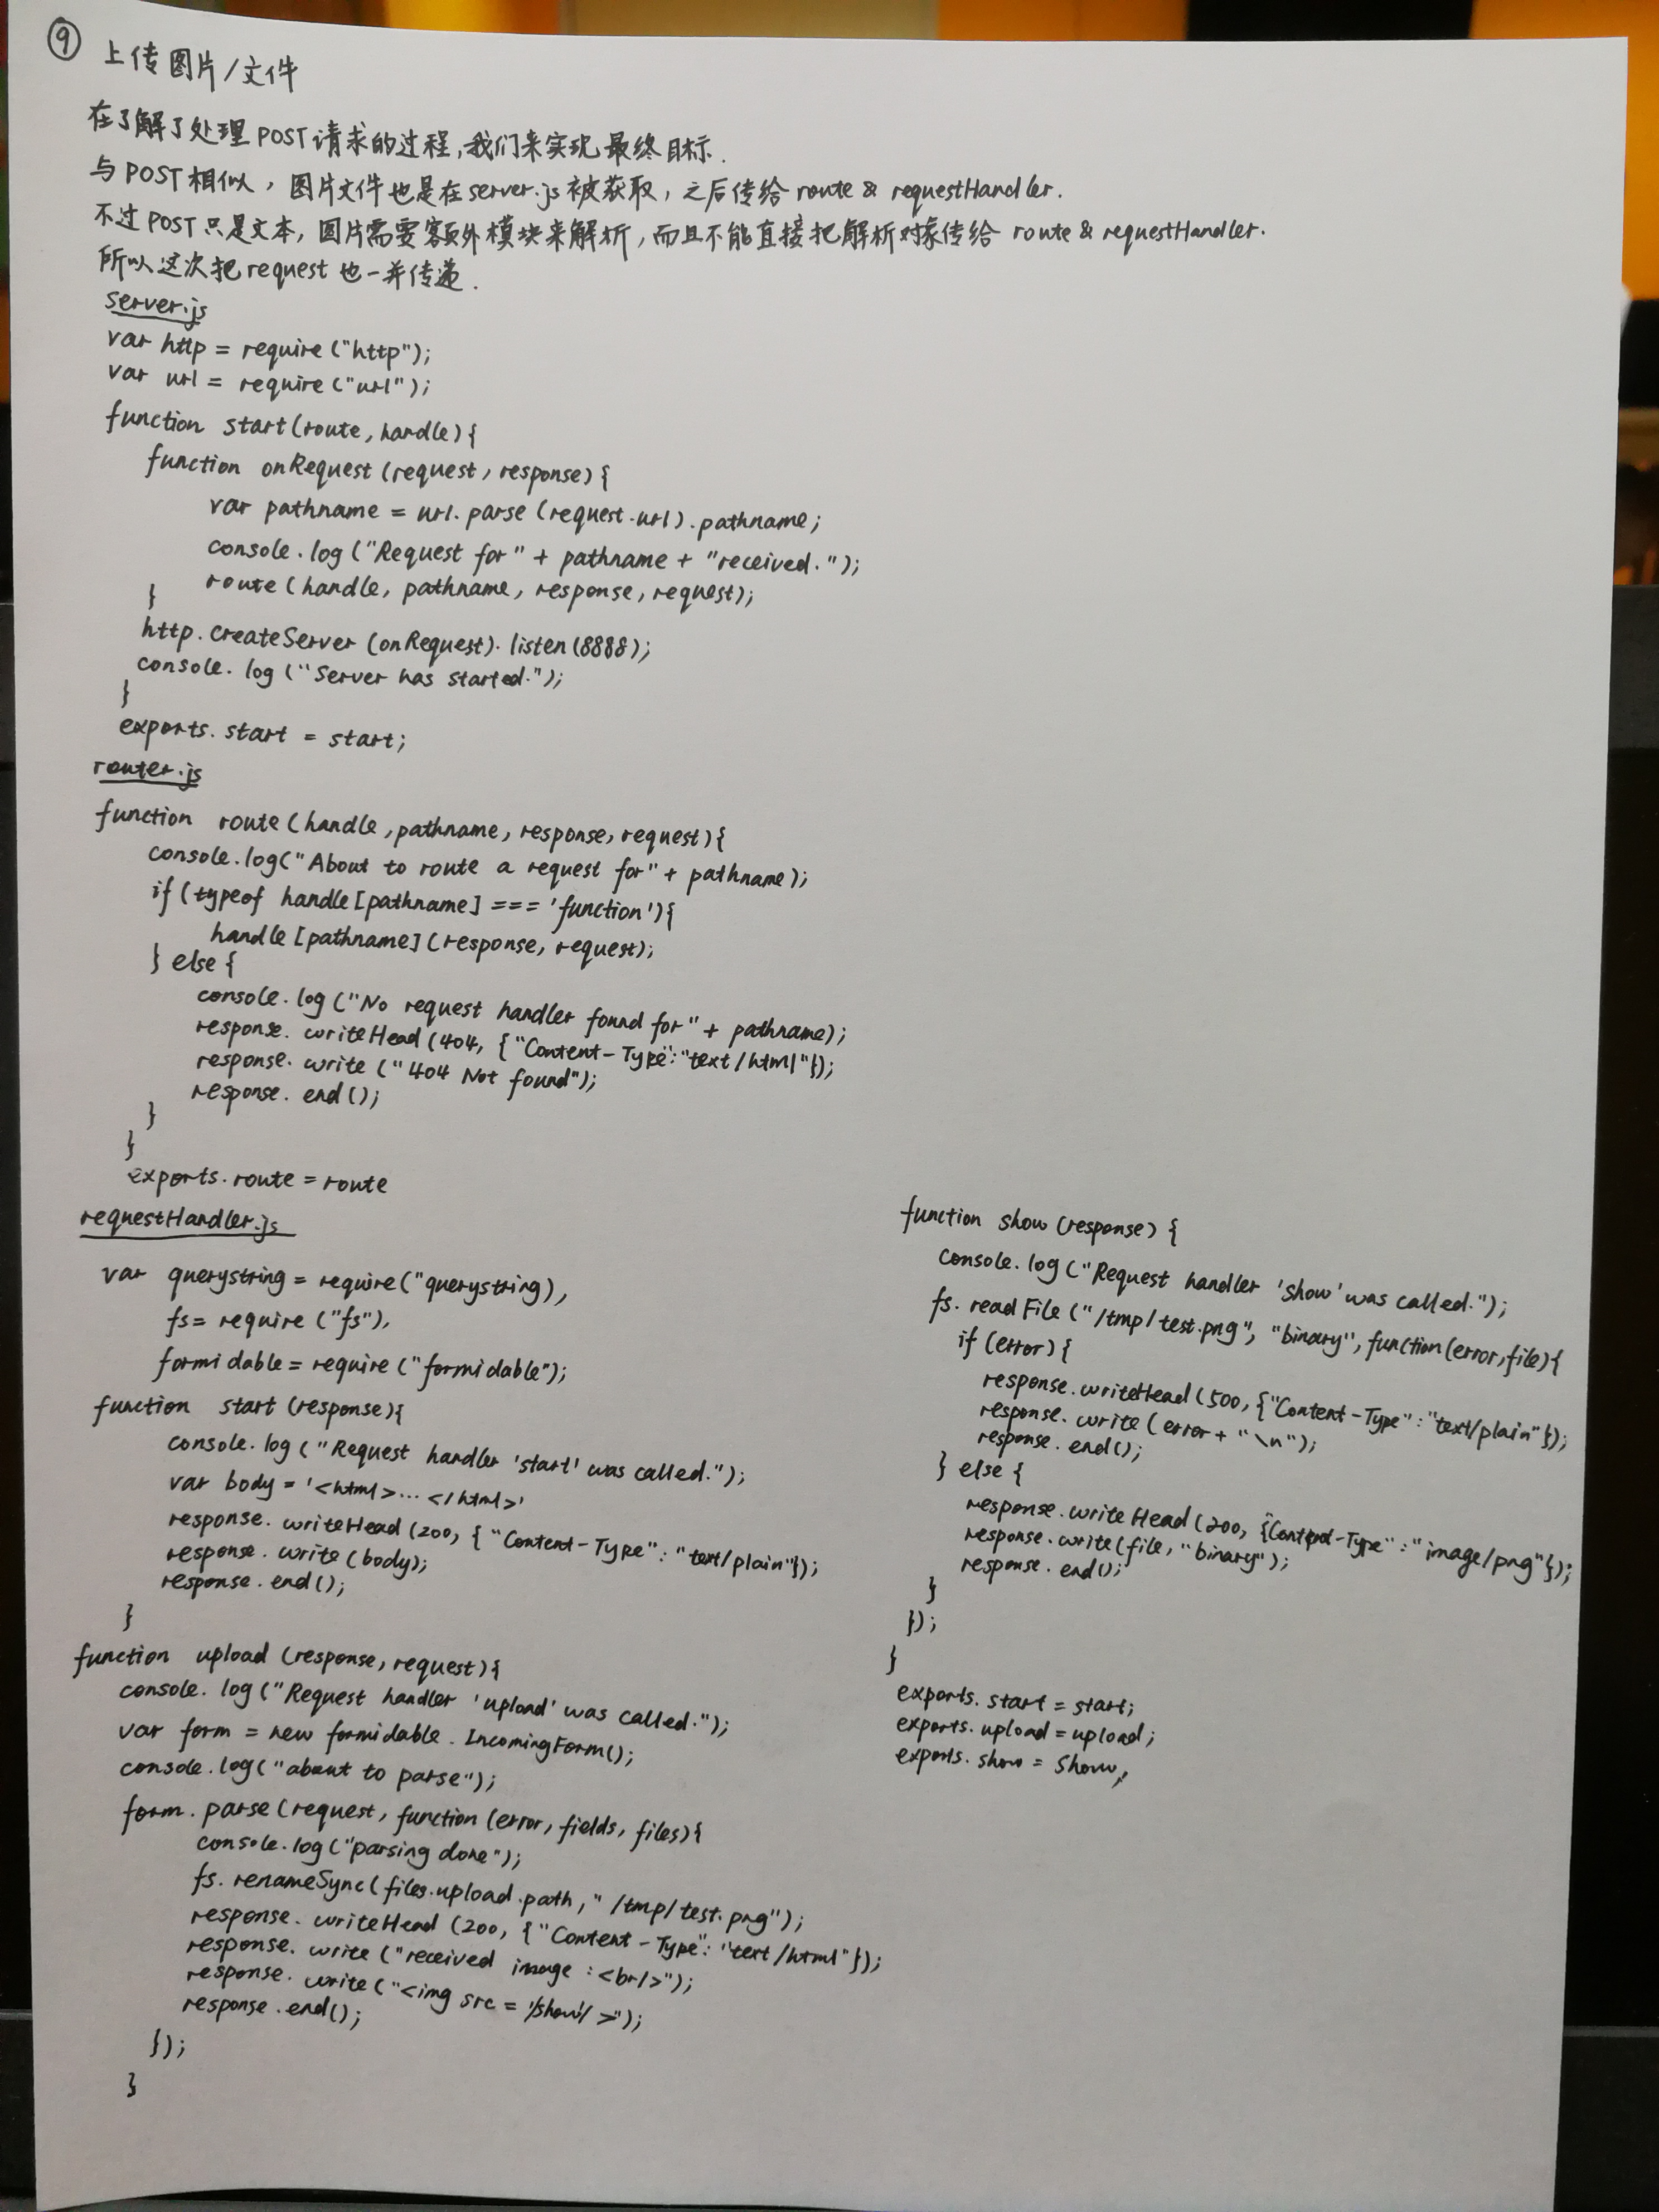 ⑨ 上传图片/文件
在了解了处理POST请求的过程,我们来实现最终目标.
与POST相似，图片文件也是在server.js被获取，之后传给 route & requestHandler.
不过POST只是文本，图片需要额外模块来解析，而且不能直接把解析对象传给 route & requestHandler.
所以这次把request也一并传递.
server.js
var http = require("http");
var url = require("url");
function start(route, handle){
function onRequest(request, response){
var pathname = url.parse(request.url).pathname;
console.log("Request for" + pathname + "received.");
route(handle, pathname, response, request);
}
http.createServer(onRequest).listen(8888);
console.log("Server has started.");
}
exports.start = start;
router.js
function route(handle, pathname, response, request){
console.log("About to route a request for" + pathname);
if(typeof handle[pathname] === 'function'){
handle[pathname](response, request);
} else {
console.log("No request handler found for" + pathname);
response.writeHead(404, {"Content-Type":"text/html"});
response.write("404 Not found");
response.end();
}
}
exports.route = route
requestHandler.js
var querystring = require("querystring),
fs= require("fs"),
formidable = require("formidable");
function start(response){
console.log("Request handler 'start' was called.");
var body = '<html>...</html>'
response.writeHead(200, {"Content-Type": "text/plain"});
response.write(body);
response.end();
}
function upload(response, request){
console.log("Request handler 'upload' was called.");
var form = new formidable.IncomingForm();
console.log("about to parse");
form.parse(request, function(error, fields, files){
console.log("parsing done");
fs.renameSync(files.upload.path, "/tmp/test.png");
response.writeHead(200, {"Content-Type": "text/html"});
response.write("received image :<br/>");
response.write("<img src = '/show'/>");
response.end();
});
}
function show(response) {
console.log("Request handler 'show' was called.");
fs.readFile("/tmp/test.png", "binary", function(error,file){
if(error){
response.writeHead(500, {"Content-Type":"text/plain"});
response.write(error + "\n");
response.end();
} else {
response.writeHead(200, {Content-Type":"image/png"});
response.write(file, "binary");
response.end();
}
});
}
exports.start = start;
exports.upload = upload;
exports.show = show;